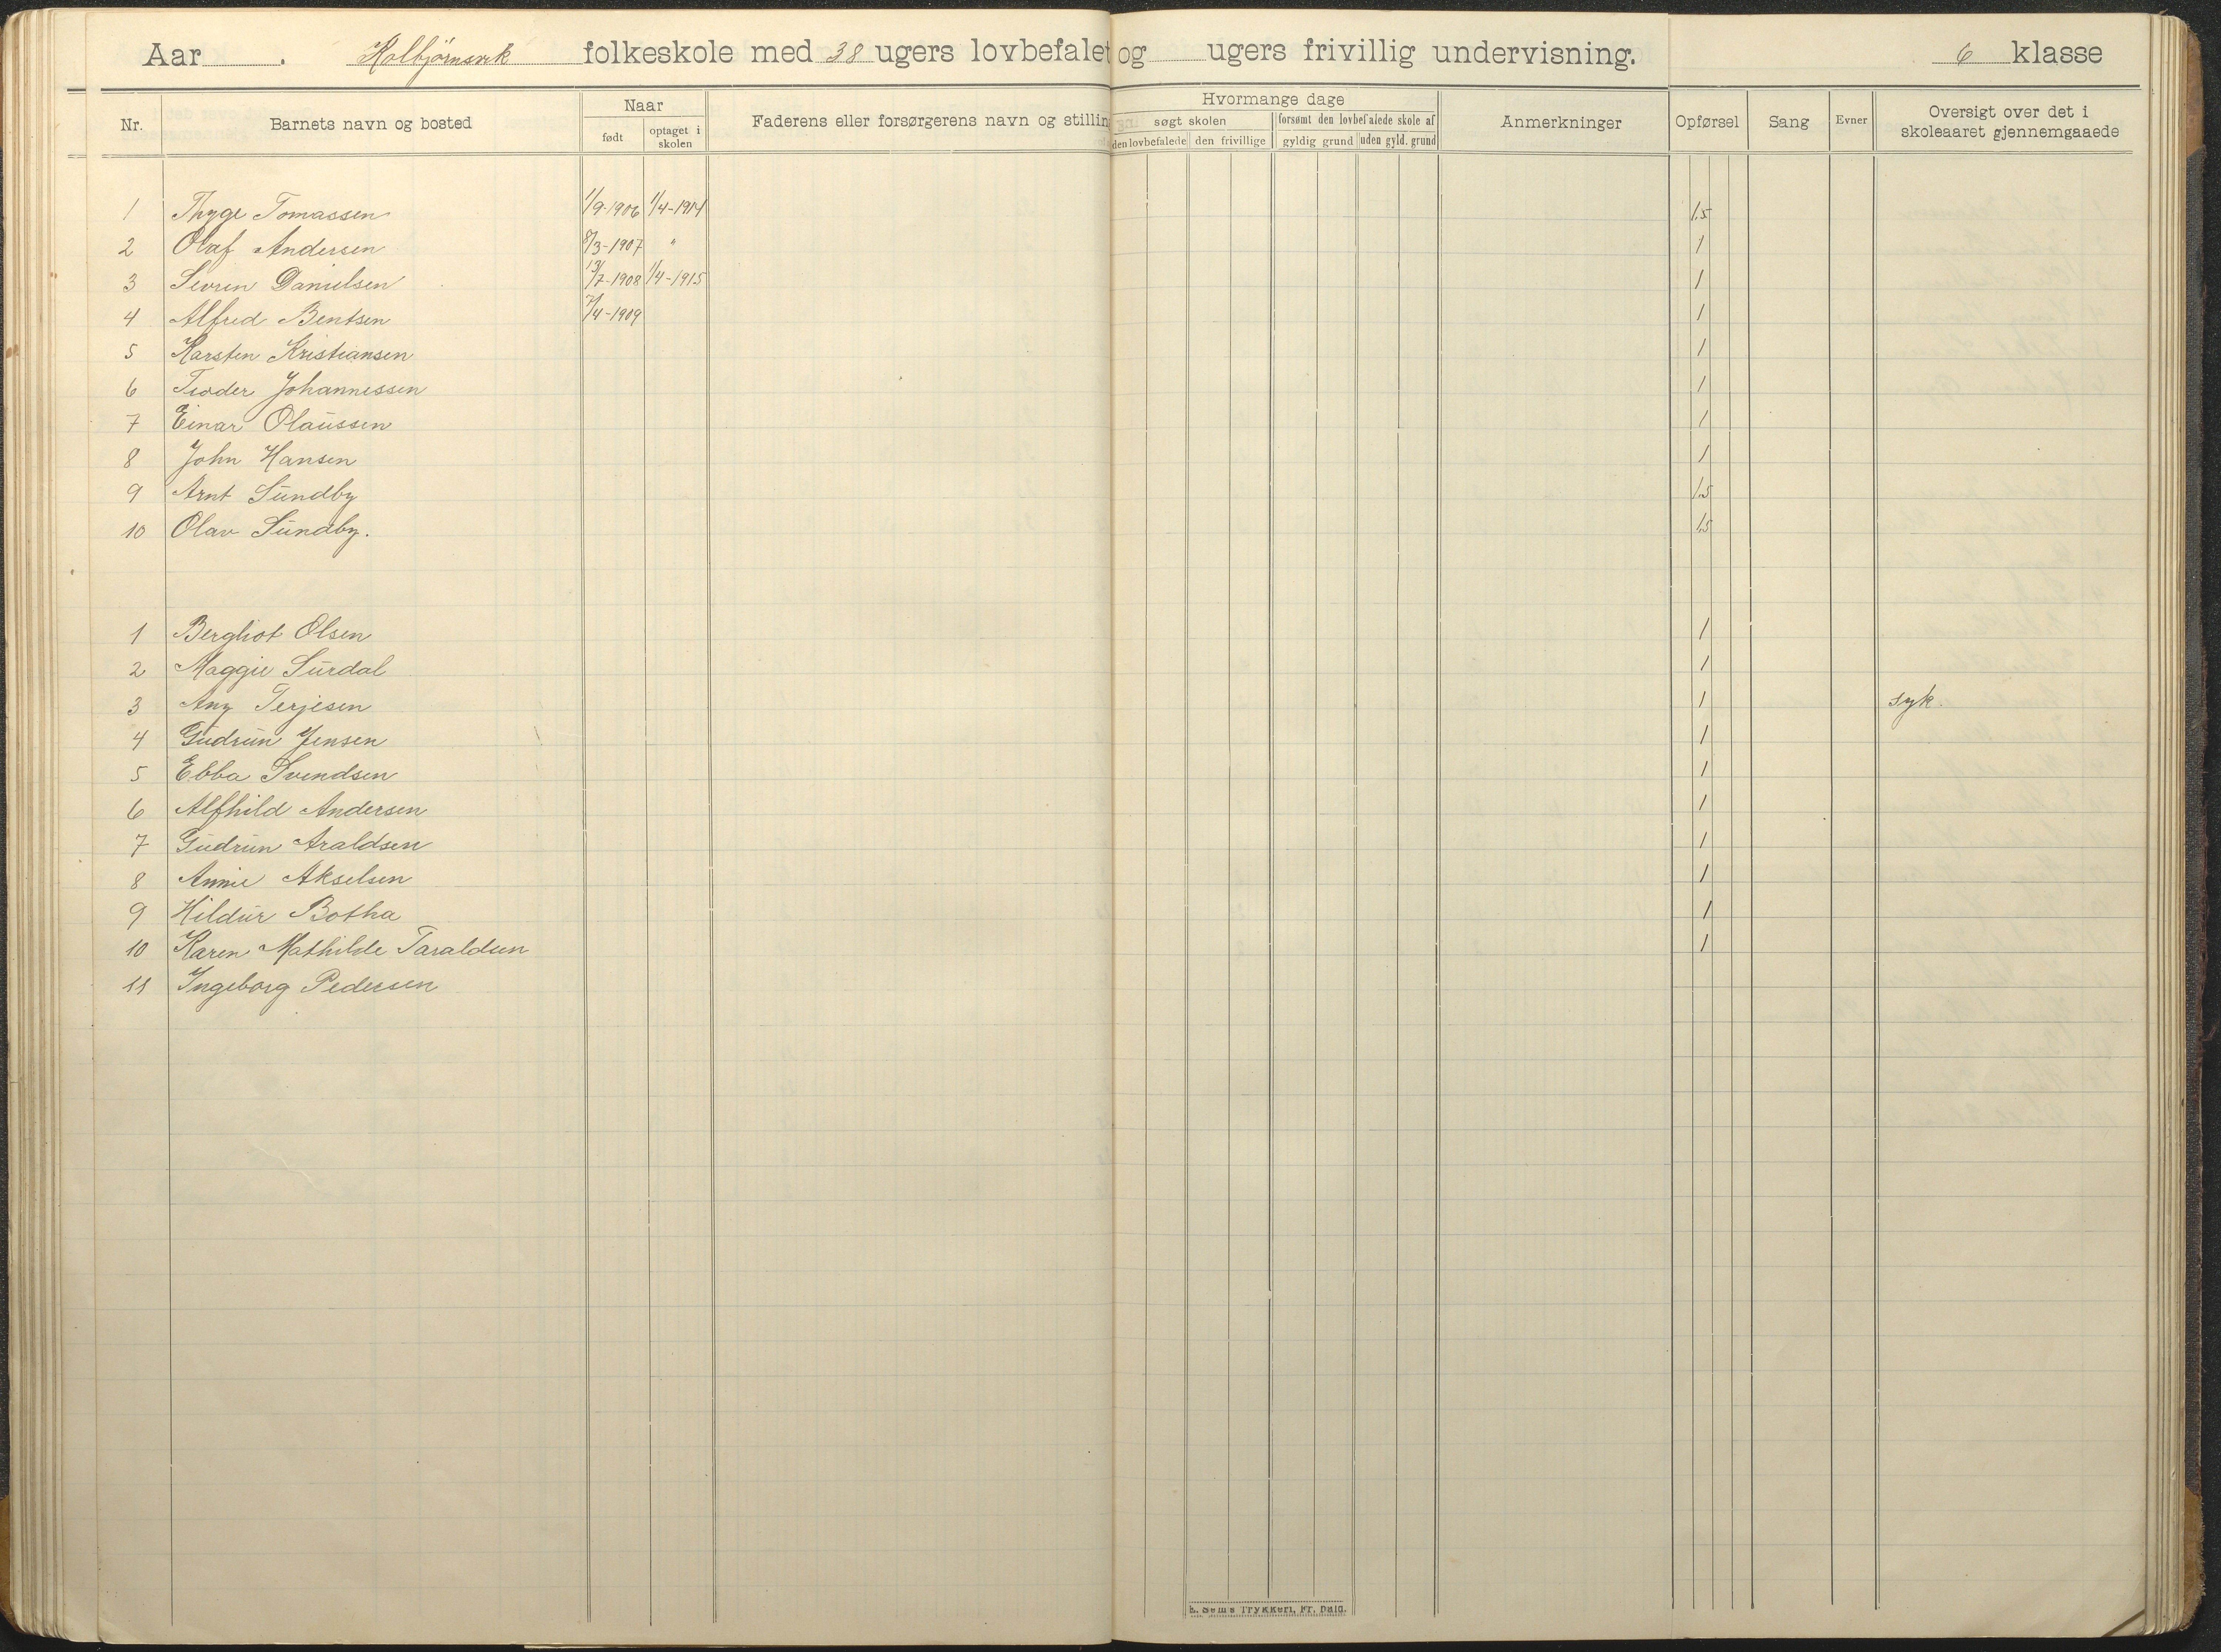 Aar . Kolbjørnsvik folkeskole med 38 ugers lovbefalet og ugers frivillig undervisning. 6 klasse
Nr. Barnets navn og bosted Naar født optaget i skolen Faderens eller forsørgerens navn og stilling Hvormange dage søgt skolen den lovbefalede den frivillige forsømt den lovbefalede skole af gyldig grund uden gyld. grund Anmerkninger Opførsel Sang Evner Oversigt over det i skoleaaret gjennemgaaede
1 Thyge Tomassen 1/9-1906 1/4-1914 1.5
2 Olaf Andersen 8/3-1907 " 1
3 Sevrin Danielsen 13/7-1908 1/4-1915 1
4 Alfred Bentsen 7/4-1909 1
5 Karsten Kristiansen 1
6 Teoder Johannessen 1
7 Einar Olaussen 1
8 John Hansen 1
9 Arnt Sundby 1.5
10 Olav Sundby. 1.5
1 Bergliot Olsen 1
2 Maggie Surdal 1
3 Any Terjesen 1 syk.
4 Gudrun Jensen 1
5 Ebba Svendsen 1
6 Alfhild Andersen 1
7 Gudrun Araldsen 1
8 Annie Akselsen 1
9 Hildur Botha 1
10 Karen Mathilde Taraldsen 1
11 Ingeborg Pedersen
E. Sems Trykkeri, Fr. Hald.